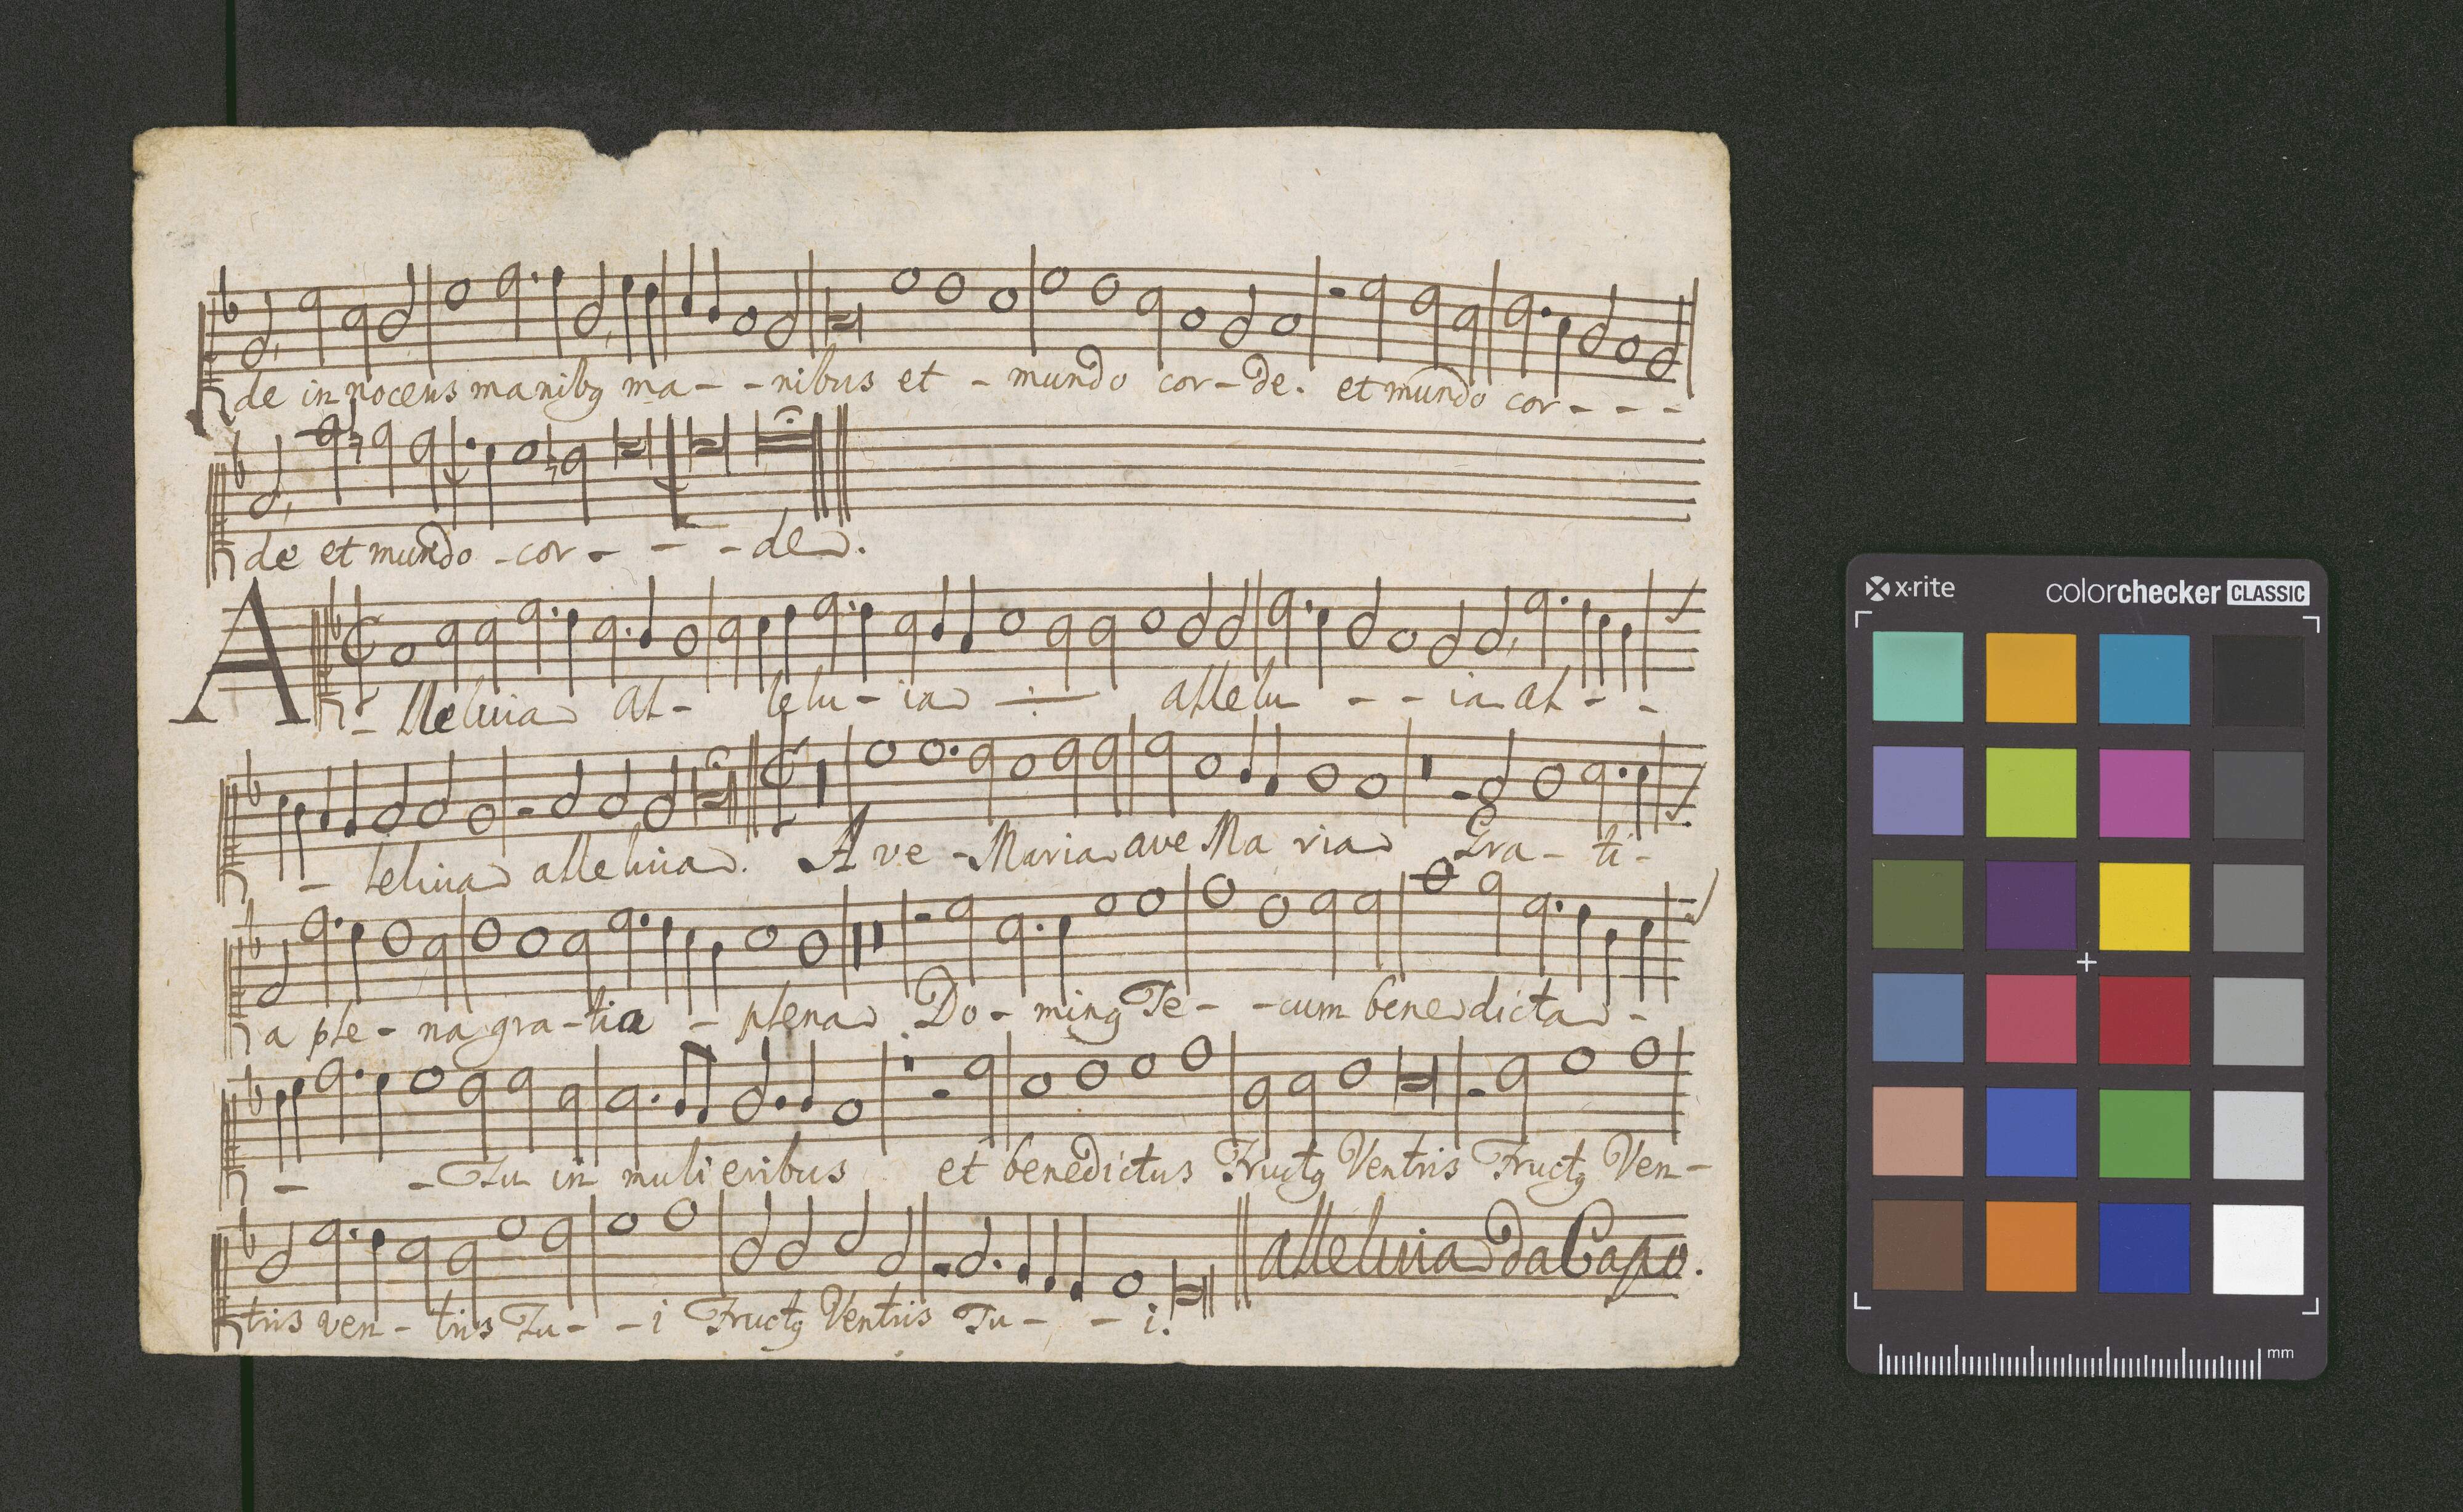 de innocens manibꝯ ma - - nibus et - mundo cor - de. et mundo cor - - -
de et mundo - cor - - - de.
A - lleluia al - lelu - ia ÷ allelu - - ia al - -
- leluia alleluia. Ave - Maria ave Maria Gra - ti -
a ple - na gra - tia - plena Do - minꝯ Te - - cum benedicta -
- - Tu in mulieribus et benedictus Fructꝯ Ventris Fructꝯ Ven -
tris ven - tris Tu - - i Fructꝯ Ventris Tu - - i. alleluia Da Capo.
x·rite colorchecker CLASSIC
mm